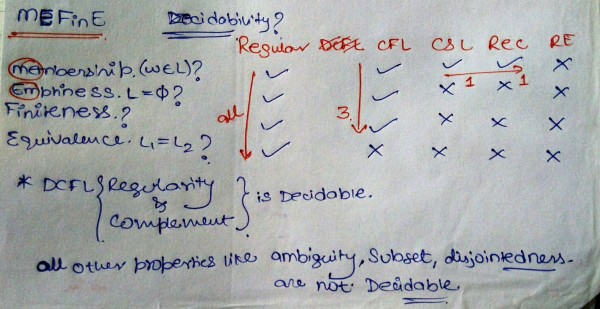 MEFinE Decidability?
Regular CFL CSL REC RE
Membership. (w∈L)? ✓ ✓ ✓ ✓ ×
Emptiness. L=Φ? ✓ ✓ × 1 × 1 ×
Finiteness.? all ✓ 3. ✓ × × ×
Equivalence. L₁=L₂? ✓ × × × ×
* DCFL { Regularity & Complement } is Decidable.
all other properties like ambiguity, Subset, disjointedness.
are not Decidable.